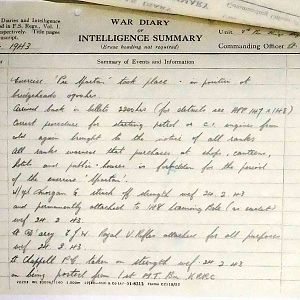 Diaries and Intelligence
ed in F.S. Regs., Vol. I.
tively. Title pages
nuscript.
1943
WAR DIARY
OF
INTELLIGENCE SUMMARY
(Erase heading not required)
Unit
Commanding Officer
Summary of Events and Information
Exercise 'Pre Marton' took place - in position at
bridgeheads 0900hrs
Arrived back in billets 2200hrs (for details see APP 1147 & 1148)
Correct procedure for starting petrol or C.I. engines from
cold again brought to the notice of all ranks
All ranks warned that purchases at shops, canteens,
hotels and public houses is forbidden for the period
of the exercise 'Marton'.
struck off strength wef 24 2 43
and permanently attached to 148 Training Bde (
wef 24 2 43
Royal U Rifles attached for all purposes
wef 24 2 43
Lt Chappell P.G. taken on strength wef 24 2 43
on being posted from 1st M.T. Bn KRRC